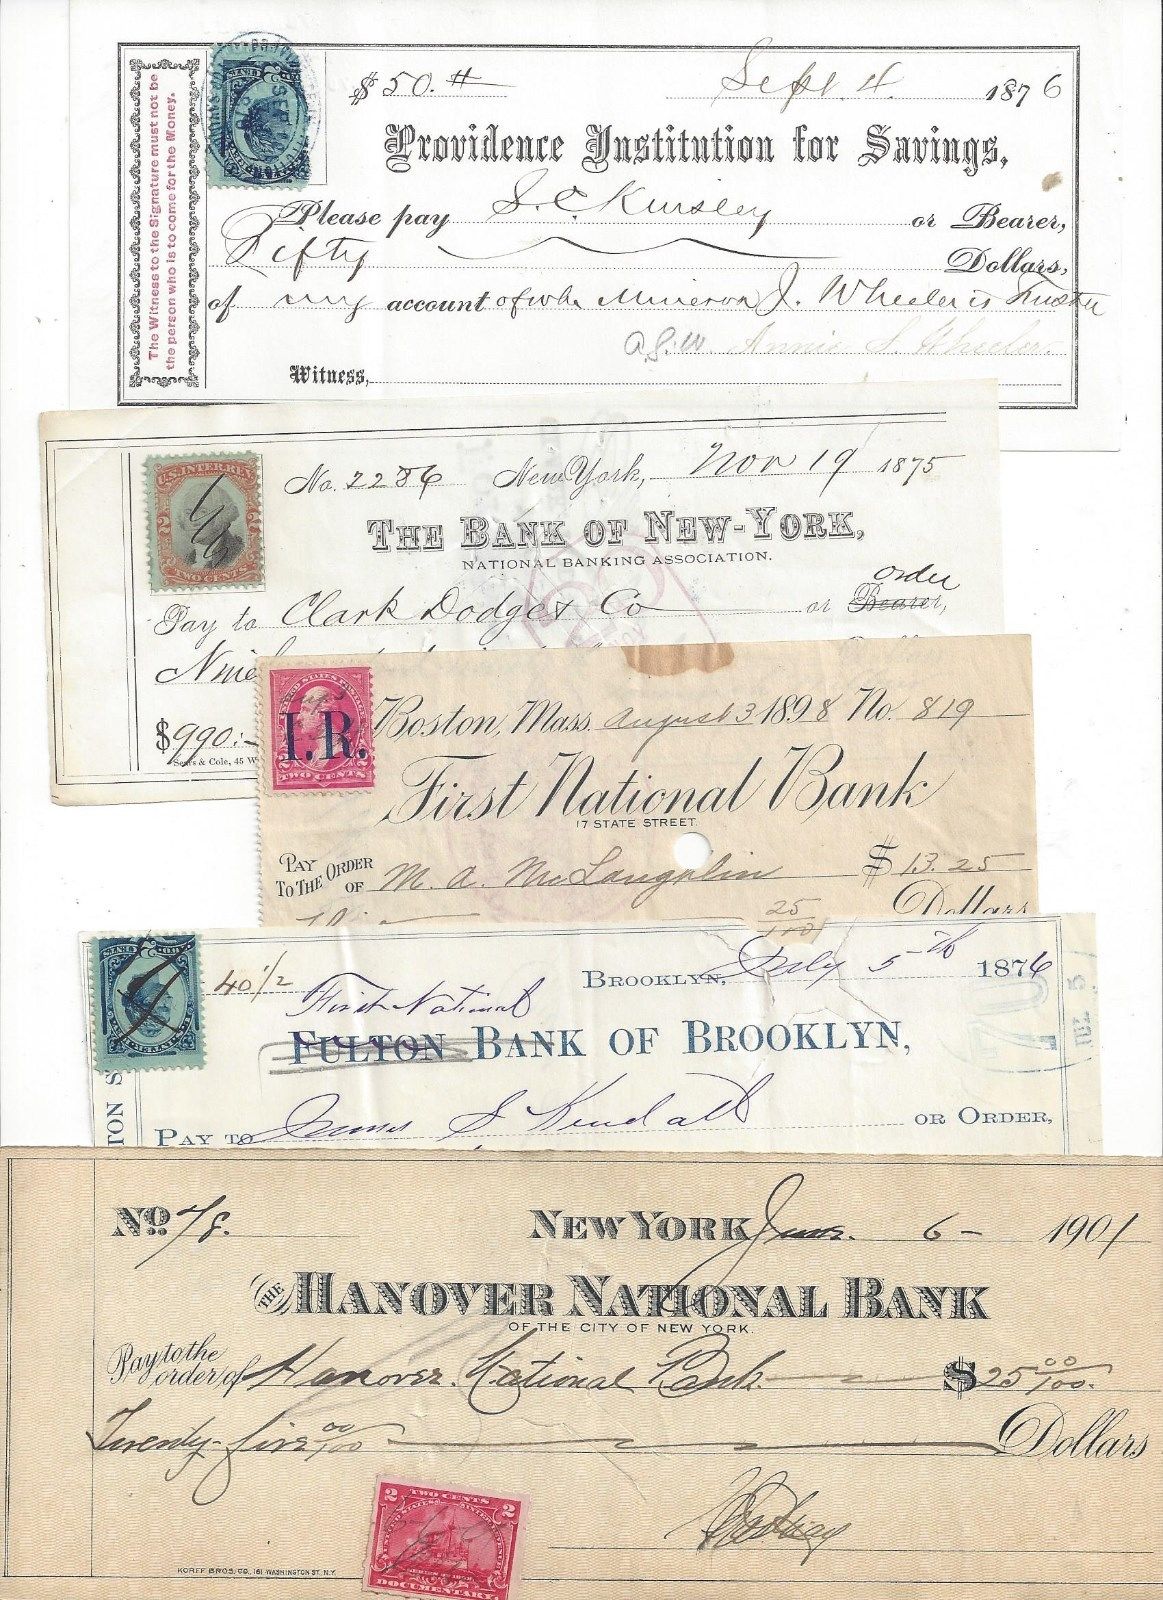 The Witness to the Signature must not be
the person who is to come for the Money.
$50.
Sept. 4 1876
Providence Institution for Savings,
Please pay S. C. Kinsley or Bearer,
Fifty Dollars,
of my account of wh. Minerva J. Wheeler is Trustee
Annie S. Wheeler
Witness,
U.S. INTER. REV.
2 2
TWO CENTS
No. 2286 New York, Nov 19 1875
THE BANK OF NEW-YORK,
NATIONAL BANKING ASSOCIATION.
order
Pay to Clark Dodge & Co or Bearer,
Nine
$990.
Sears & Cole, 45 W
UNITED STATES POSTAGE
I.R.
2 2
TWO CENTS
Boston, Mass. August 3 1898 No. 819
First National Bank
17 STATE STREET.
PAY TO THE ORDER OF M. A. McLaughlin $13.25
25/100 Dollars
40 1/2 BROOKLYN, July 5th 1876
First National
FULTON BANK OF BROOKLYN,
JUL 5
TON S
PAY TO James S Kendall OR ORDER,
No 78. NEW YORK 6 - 1901
THE HANOVER NATIONAL BANK
OF THE CITY OF NEW YORK.
Pay to the order of Hanover National Bank $25 00/100.
Twenty-five 00/100 Dollars
2 TWO CENTS 2
DOCUMENTARY
KORFF BROS. CO, 161 WASHINGTON ST. N.Y.